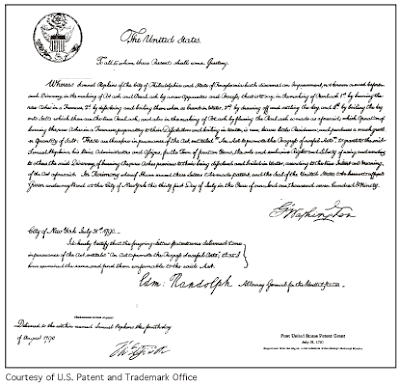 The United States.
To all to whom these Presents shall come, Greeting.
Whereas Samuel Hopkins of the City of Philadelphia and State of Pensylvania hath discovered an Improvement, not known or used before
such Discovery, in the making of Pot ash and Pearl ash by a new Apparatus and Process; that is to say, in the making of Pearl ash 1st by burning the
raw Ashes in a Furnace, 2d by dissolving and boiling them when so burnt in Water, 3d by drawing off and settling the Ley, and 4th by boiling the Ley
into Salts which then are the true Pearl ash; and also in the making of Pot ash by fluxing the Pearl ash so made as aforesaid; which Operation of
burning the raw Ashes in a Furnace, preparatory to their Dissolution and boiling in Water, is new, leaves little Residuum; and produces a much greater
Quantity of Salt: These are therefore in pursuance of the Act, entituled "An Act to promote the Progress of useful Arts", to grant to the said
Samuel Hopkins, his Heirs, Administrators and Assigns, for the Term of fourteen Years, the sole and exclusive Right and Liberty of using, and vending
to others the said Discovery, of burning the raw Ashes previous to their being dissolved and boiled in Water, according to the true Intent and meaning
of the Act aforesaid. In Testimony whereof I have caused these Letters to be made patent, and the Seal of the United States to be hereunto affixed.
Given under my Hand at the City of New York this thirty first Day of July in the Year of our Lord one thousand seven hundred & Ninety.
G Washington
City of New York July 31st 1790.
I do hereby Certify that the foregoing Letters patent were delivered to me
in pursuance of the Act, entituled "An Act to promote the Progress of useful Arts"; that I
have examined the same, and find them conformable to the said Act.
Edm: Randolph Attorney General for the United States.
Delivered to the within named Samuel Hopkins this fourth day
of August 1790.
Th: Jefferson
First United States Patent Grant
July 31, 1790
Courtesy of U.S. Patent and Trademark Office